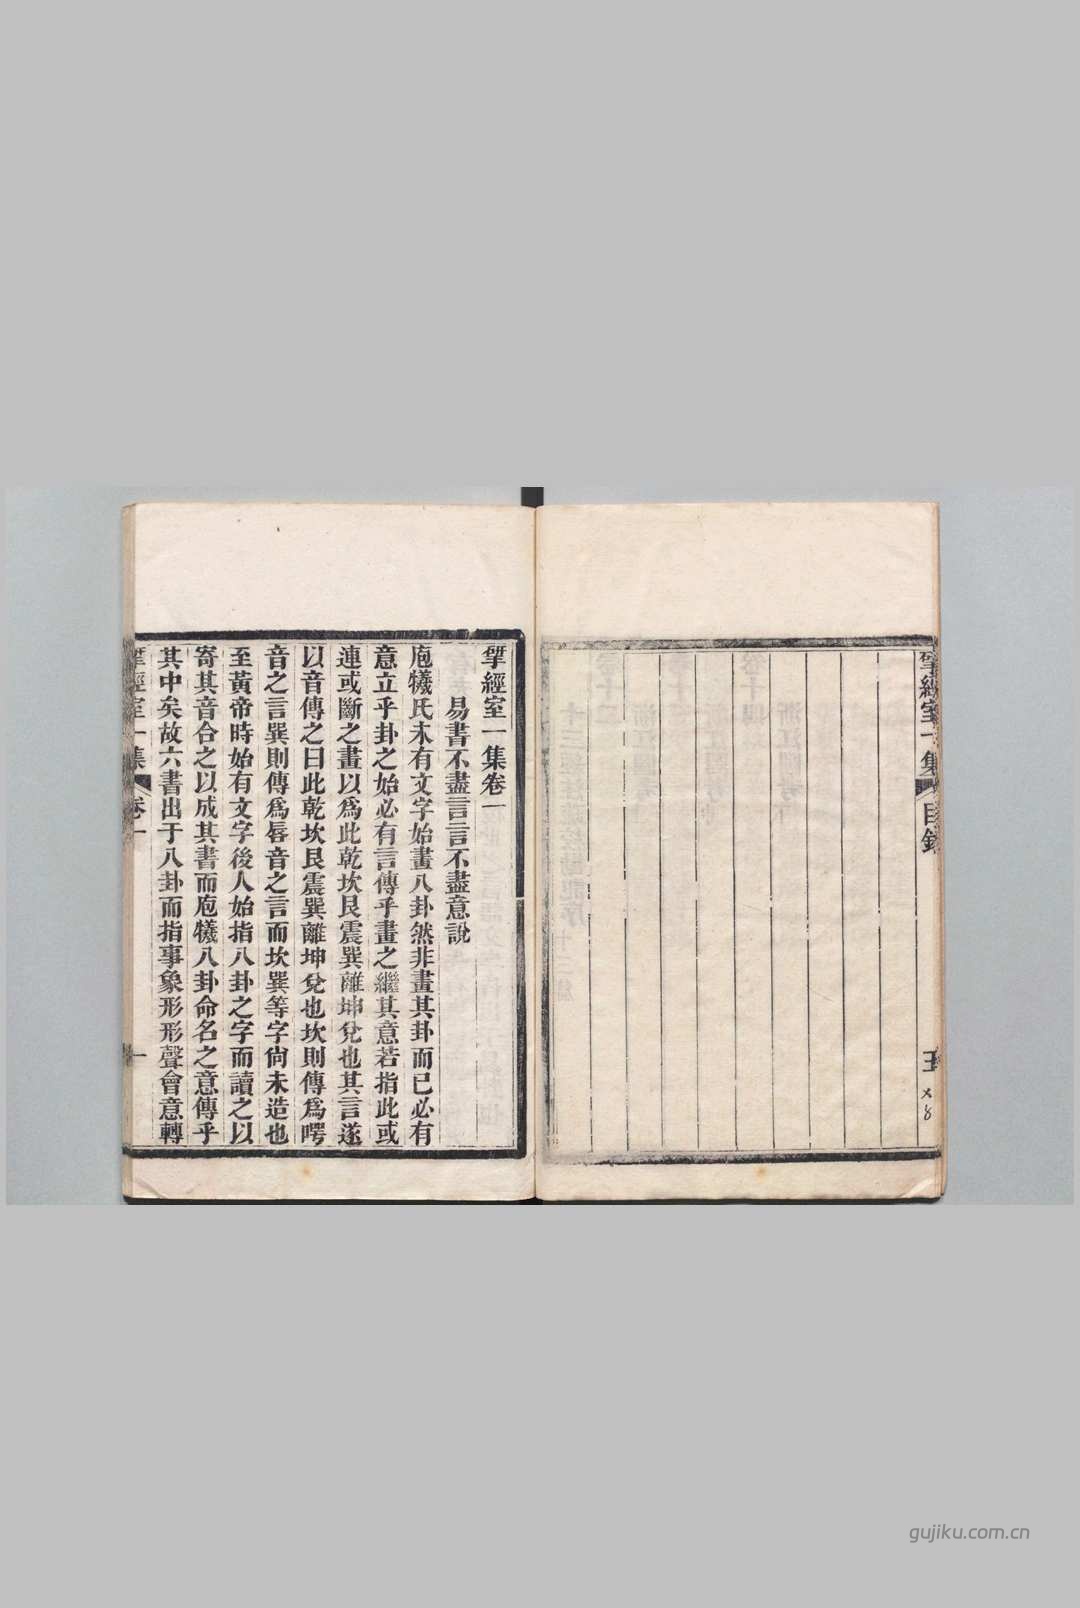 揅經室一集 目錄
揅經室一集卷一
易書不盡言言不盡意說
庖犧氏未有文字始畫八卦然非畫其卦而已必有
意立乎卦之始必有言傳乎畫之繼其意若指此或
連或斷之畫以爲此乾坎艮震巽離坤兌也其言遂
以音傳之曰此乾坎艮震巽離坤兌也坎則傳爲㖾
音之言巽則傳爲唇音之言而坎巽等字尙未造也
至黃帝時始有文字後人始指八卦之字而讀之以
寄其音合之以成其書而庖犧八卦命名之意傳乎
其中矣故六書出于八卦而指事象形形聲會意轉
揅經室一集 卷一 一
gujiku.com.cn